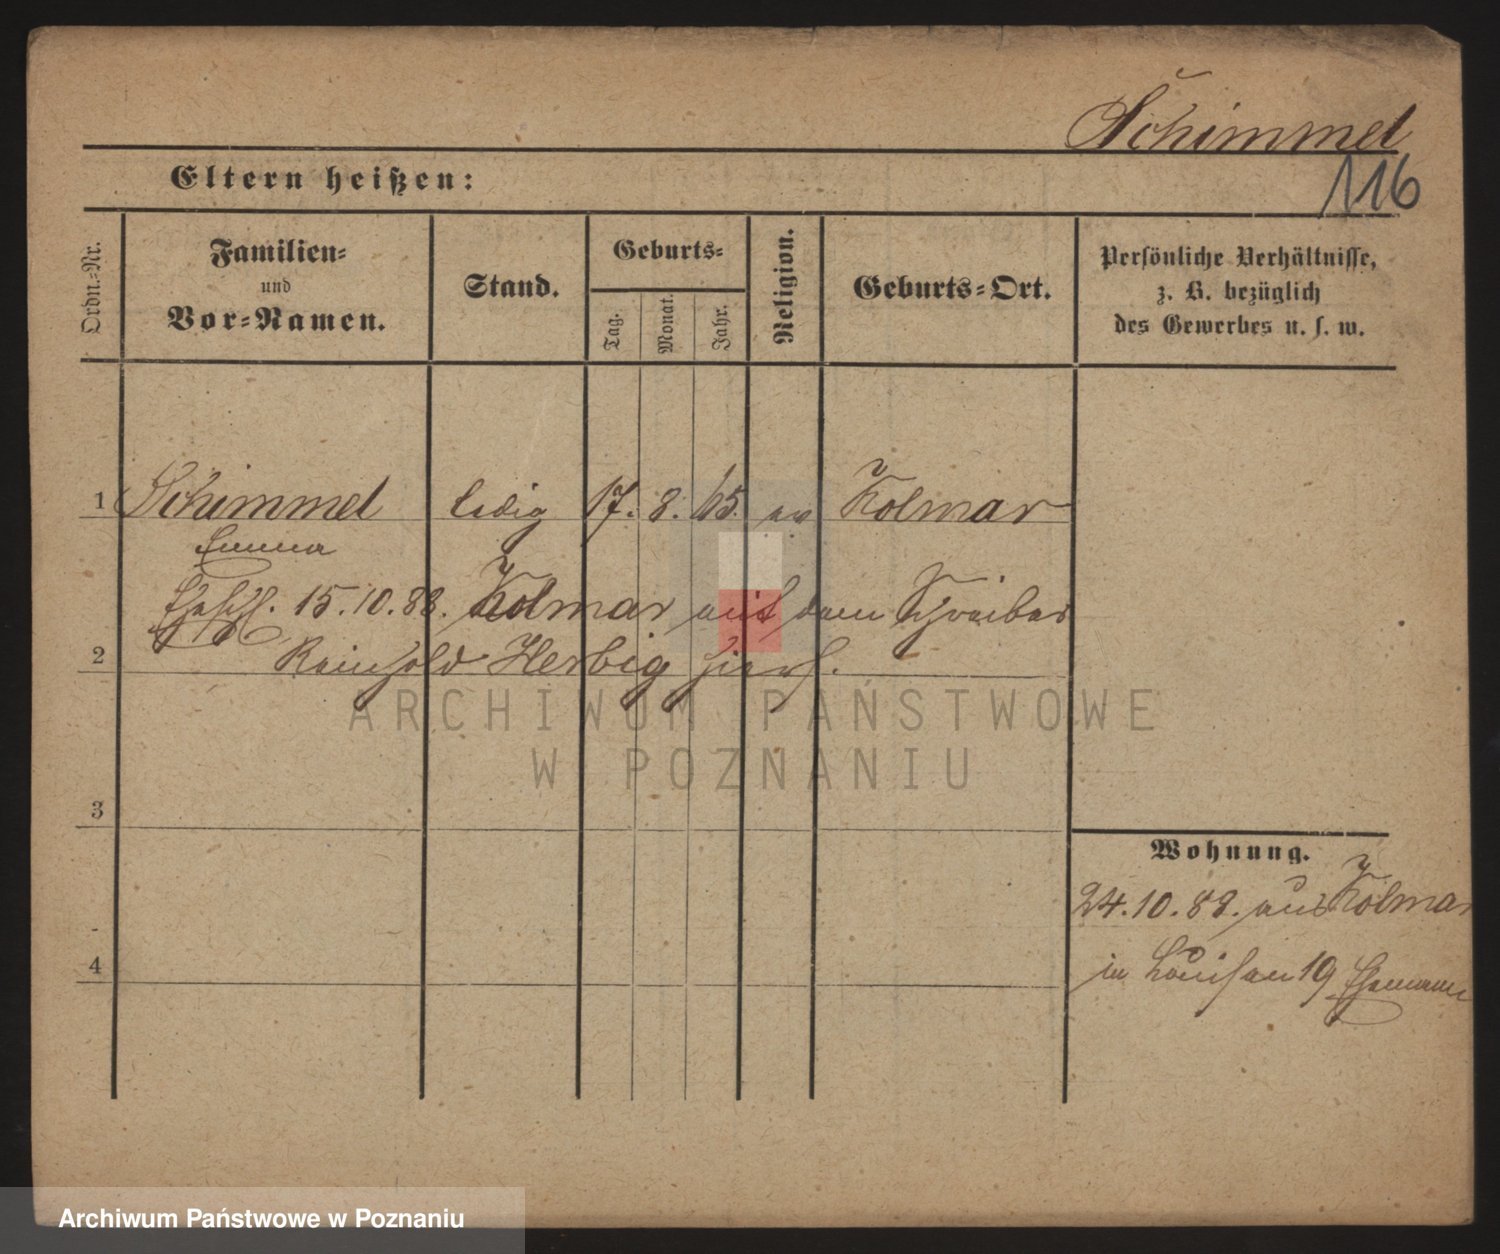 Schimmel
116
Eltern heißen:
Ordn.-Nr.
Familien-
und
Vor-Namen.
Stand.
Geburts-
Tag.
Monat.
Jahr.
Religion.
Geburts-Ort.
Persönliche Verhältnisse,
z. B. bezüglich
des Gewerbes u. s. w.
1 Schimmel ledig 17. 8. 65. ev Kolmar
Emma
15.10.88. Kolmar mit dem Schreiber
2 Reinhold Herbig hiers.
ARCHIWUM PAŃSTWOWE
W POZNANIU
3
Wohnung.
24.10.88. aus Kolmar
4
in Louisen 19 Ehemann
Archiwum Państwowe w Poznaniu